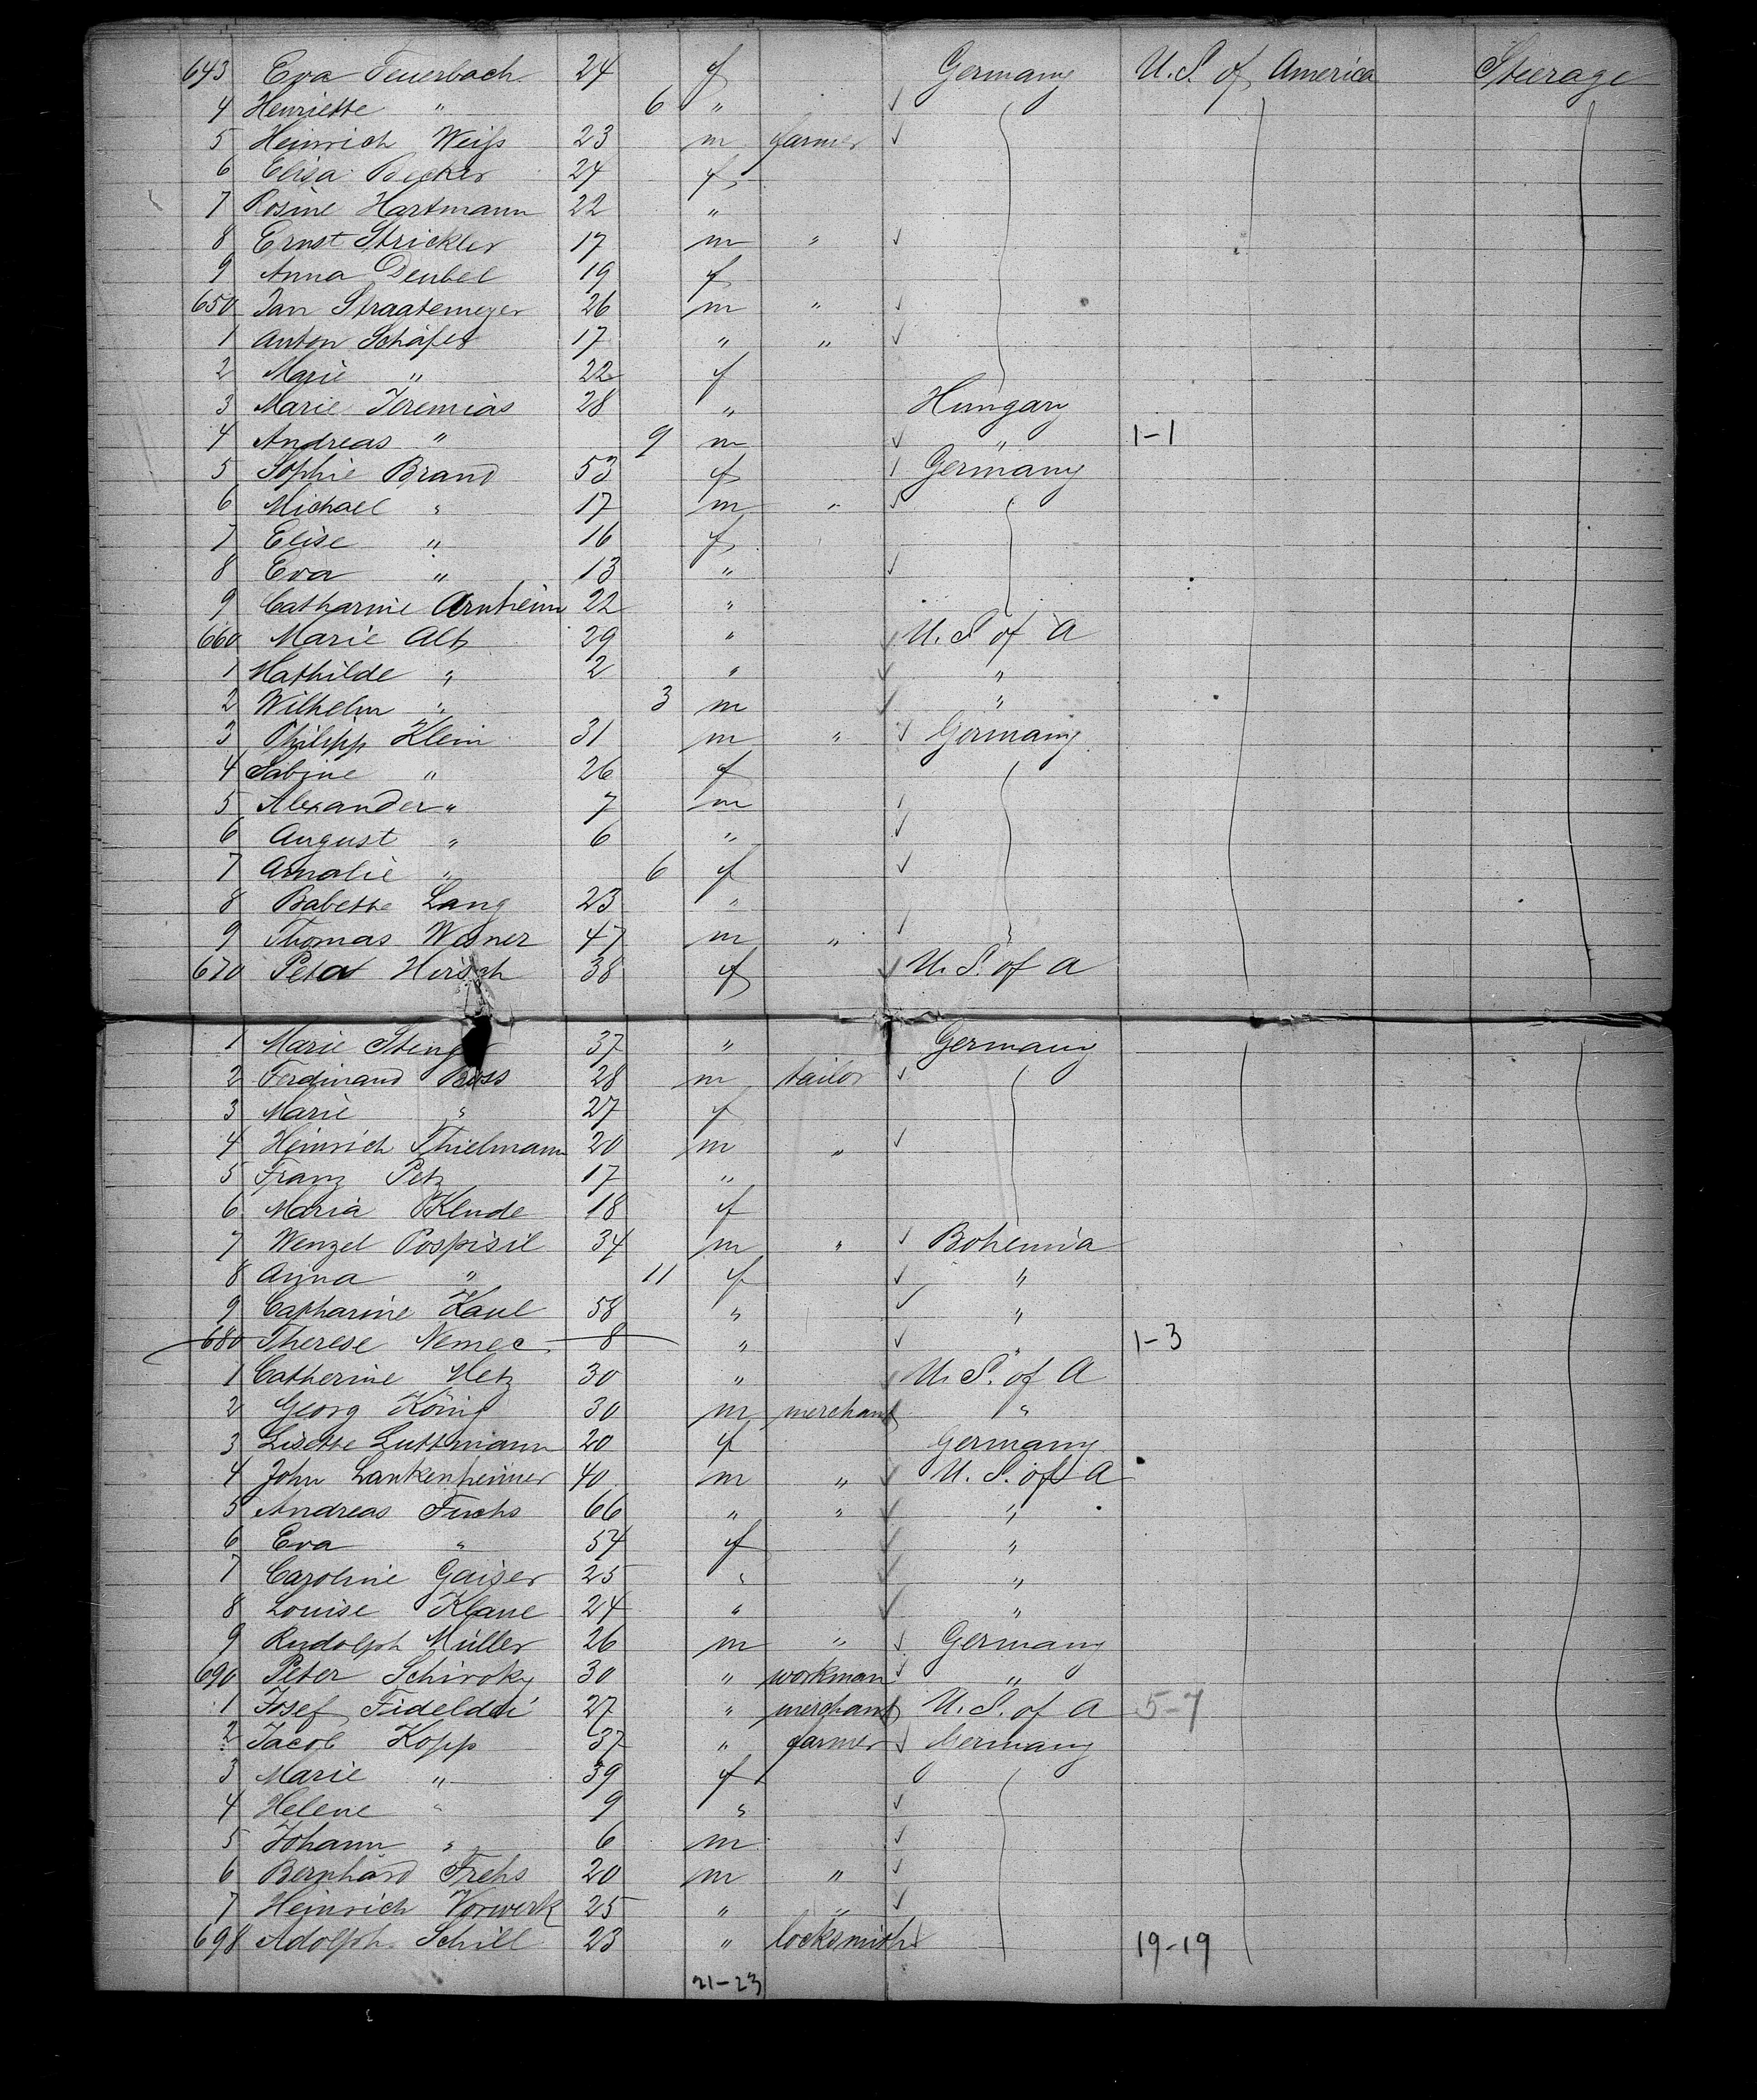 643 Eva Feuerbach 24 f Germany U.S. of America Steerage
4 Henriette " 6 "
5 Heinrich Weiſs 23 m farmer
6 Elisa Becker 24 f
7 Rosine Hartmann 22 "
8 Ernst Strickler 17 m "
9 Anna Deubel 19 f
650 Jan Straatemeyer 26 m "
1 Anton Schäfer 17 " "
2 Marie " 22 f
3 Marie Jeremias 28 " Hungary
4 Andreas " 9 m " 1-1
5 Sophie Brand 53 f Germany
6 Michael " 17 m "
7 Elise " 16 f
8 Eva " 13 "
9 Catharine Arnheim 22 "
660 Marie Alt 29 " U. S of A
1 Mathilde " 2 " "
2 Wilhelm " 3 m "
3 Philipp Klein 31 m " Germany
4 Sabine " 26 f
5 Alexander " 7 m
6 August " 6 "
7 Amalie " 6 f
8 Babette Lang 23 "
9 Thomas Wesner 47 m "
670 Hirsch 38 f U. S. of A
1 Marie 37 " Germany
2 Ferdinand 28 m tailor
3 Marie " 27 f
4 Heinrich Thielmann 20 m "
5 Franz Petz 17 "
6 Maria Klude 18 f
7 Wenzel Pospisil 34 m " Bohemia
8 Anna " 11 f "
9 Catharine Kaul 58 " "
680 Therese Nemec 8 " " 1-3
1 Catherine Hetz 30 " U. S. of A
2 Georg König 30 m merchant "
3 Lisette Luttmann 20 f Germany
4 John Lankenheimer 40 m " U. S. of A
5 Andreas Fuchs 66 " " "
6 Eva " 54 f "
7 Caroline Gaiser 25 " "
8 Louise Klaue 24 " "
9 Rudolph Müller 26 m " Germany
690 Peter Schiroky 30 " workman "
1 Josef 27 " merchant U. S. of A 5-7
2 Jacob Kopp 37 " farmer Germany
3 Marie " 39 f
4 Helene " 9 "
5 Johann " 6 m
6 Bernhard Frehs 20 m "
7 Heinrich Vorwerk 25 " "
698 Adolph Schill 23 " locksmith 19-19
21-23